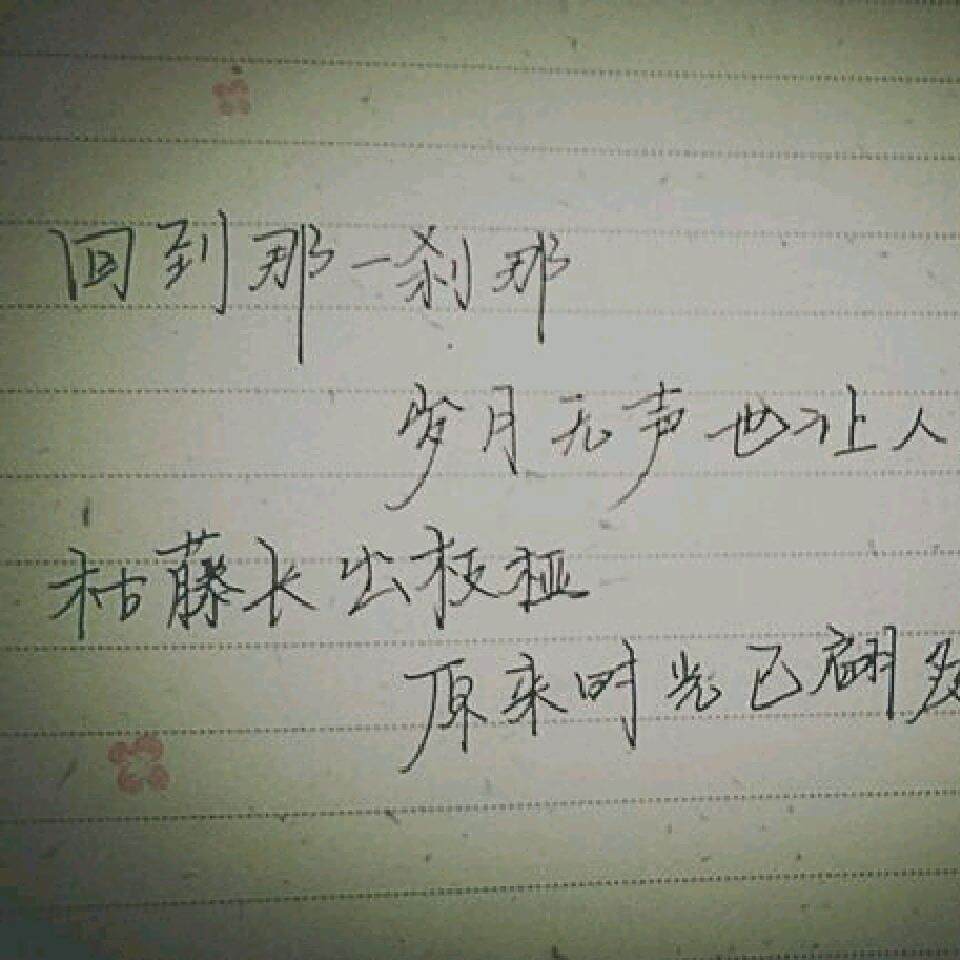 回到那一刹那
岁月无声也让人
枯藤长出枝桠
原来时光已翩